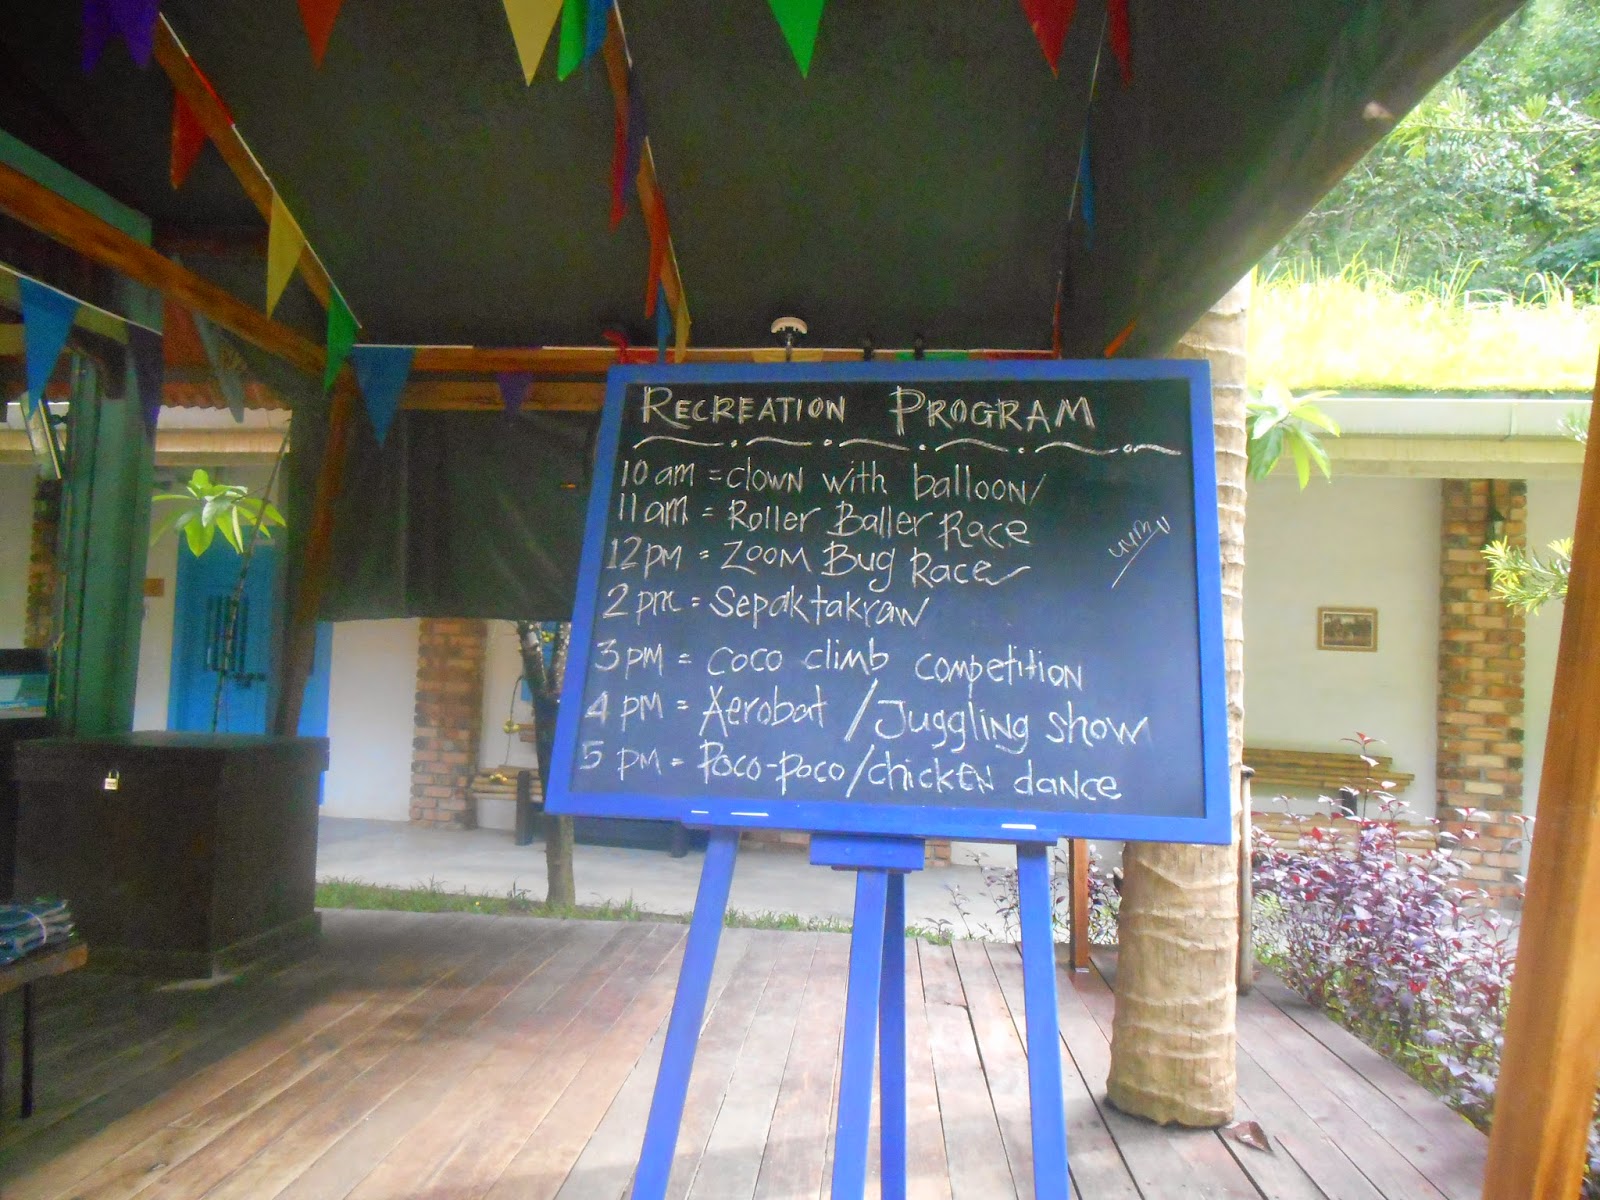 RECREATION PROGRAM
10 am = clown with balloon/
11 am = Roller Baller Race
12 pm = Zoom Bug Race
2 pm = Sepaktakraw
3 pm = coco climb competition
4 pm = Aerobat / Juggling show
5 pm = Poco-poco/chicken dance